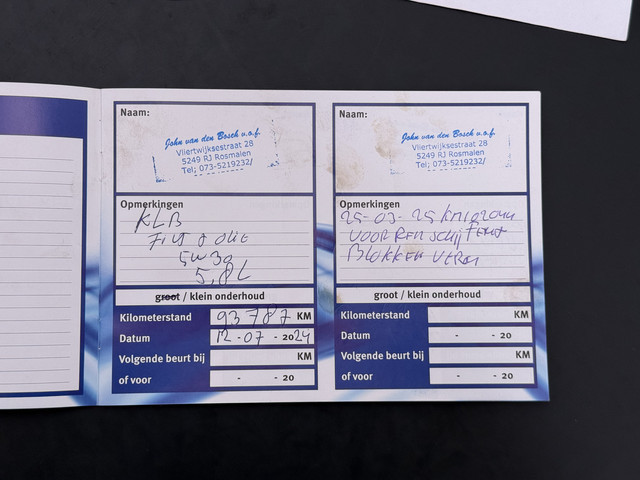 Naam:
John van den Bosch v.o.f.
Vliertwijksestraat 28
5249 RJ Rosmalen
Tel; 073-5219232/
Opmerkingen
KLB
Filt & olie
5W30
5,8L
groot / klein onderhoud
Kilometerstand 93787 KM
Datum 12 - 07 - 2024
Volgende beurt bij KM
of voor - - 20
Naam:
John van den Bosch v.o.f.
Vliertwijksestraat 28
5249 RJ Rosmalen
Tel; 073-5219232/
Opmerkingen
25-03-25
VOOR REMSCHIJF
BLOKKEN
groot / klein onderhoud
Kilometerstand KM
Datum - - 20
Volgende beurt bij KM
of voor - - 20